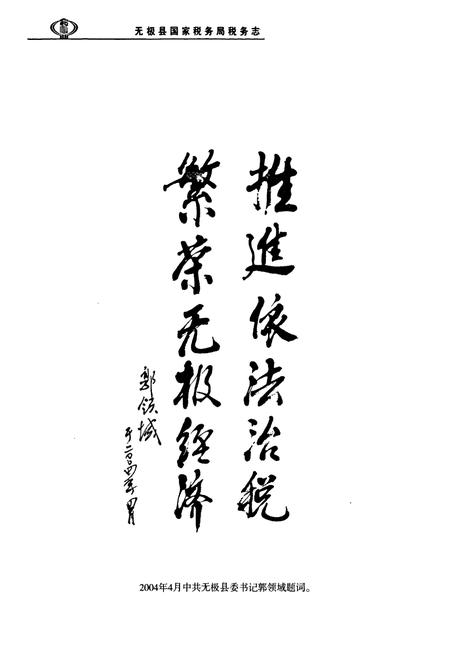 无极县国家税务局税务志
推進依法治税
繁荣无极经济
郭领域
于二〇〇四年四月
2004年4月中共无极县委书记郭领域题词。